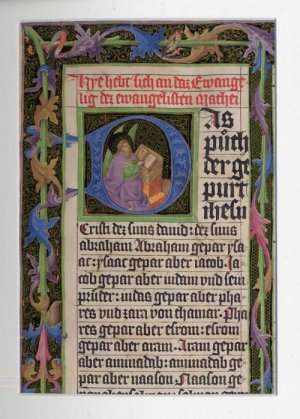 Hye hebt sich an daz Ewange
lig dez ewangelisten Mathei
Das
půch
der ge
purt
ihesu
Cristi dez suns dauid: dez suns
abraham Abraham gepar ysa
ac: ysaac gepar aber iacob. Ja
cob gepar aber iudam vnd sein
prüder: iudas gepar aber pha
res vnd zara von thamar. Pha
res gepar aber esrom: esrom
gepar aber aram. Aram gepar
aber aminadab: aminadab ge
par aber naason. Naason ge